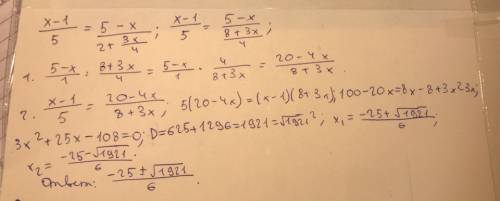 (x-1)/5 = (5-x)/(2+3x/4); (x-1)/5 = (5-x)/((8+3x)/4);
1. (5-x)/1 : (8+3x)/4 = (5-x)/1 · 4/(8+3x) = (20-4x)/(8+3x).
2. (x-1)/5 = (20-4x)/(8+3x); 5(20-4x)=(x-1)(8+3x); 100-20x=8x-8+3x²-3x;
3x²+25x-108=0; D=625+1296=1921=√1921²; x₁=(-25+√1921)/6;
x₂=(-25-√1921)/6.
Ответ: (-25±√1921)/6.